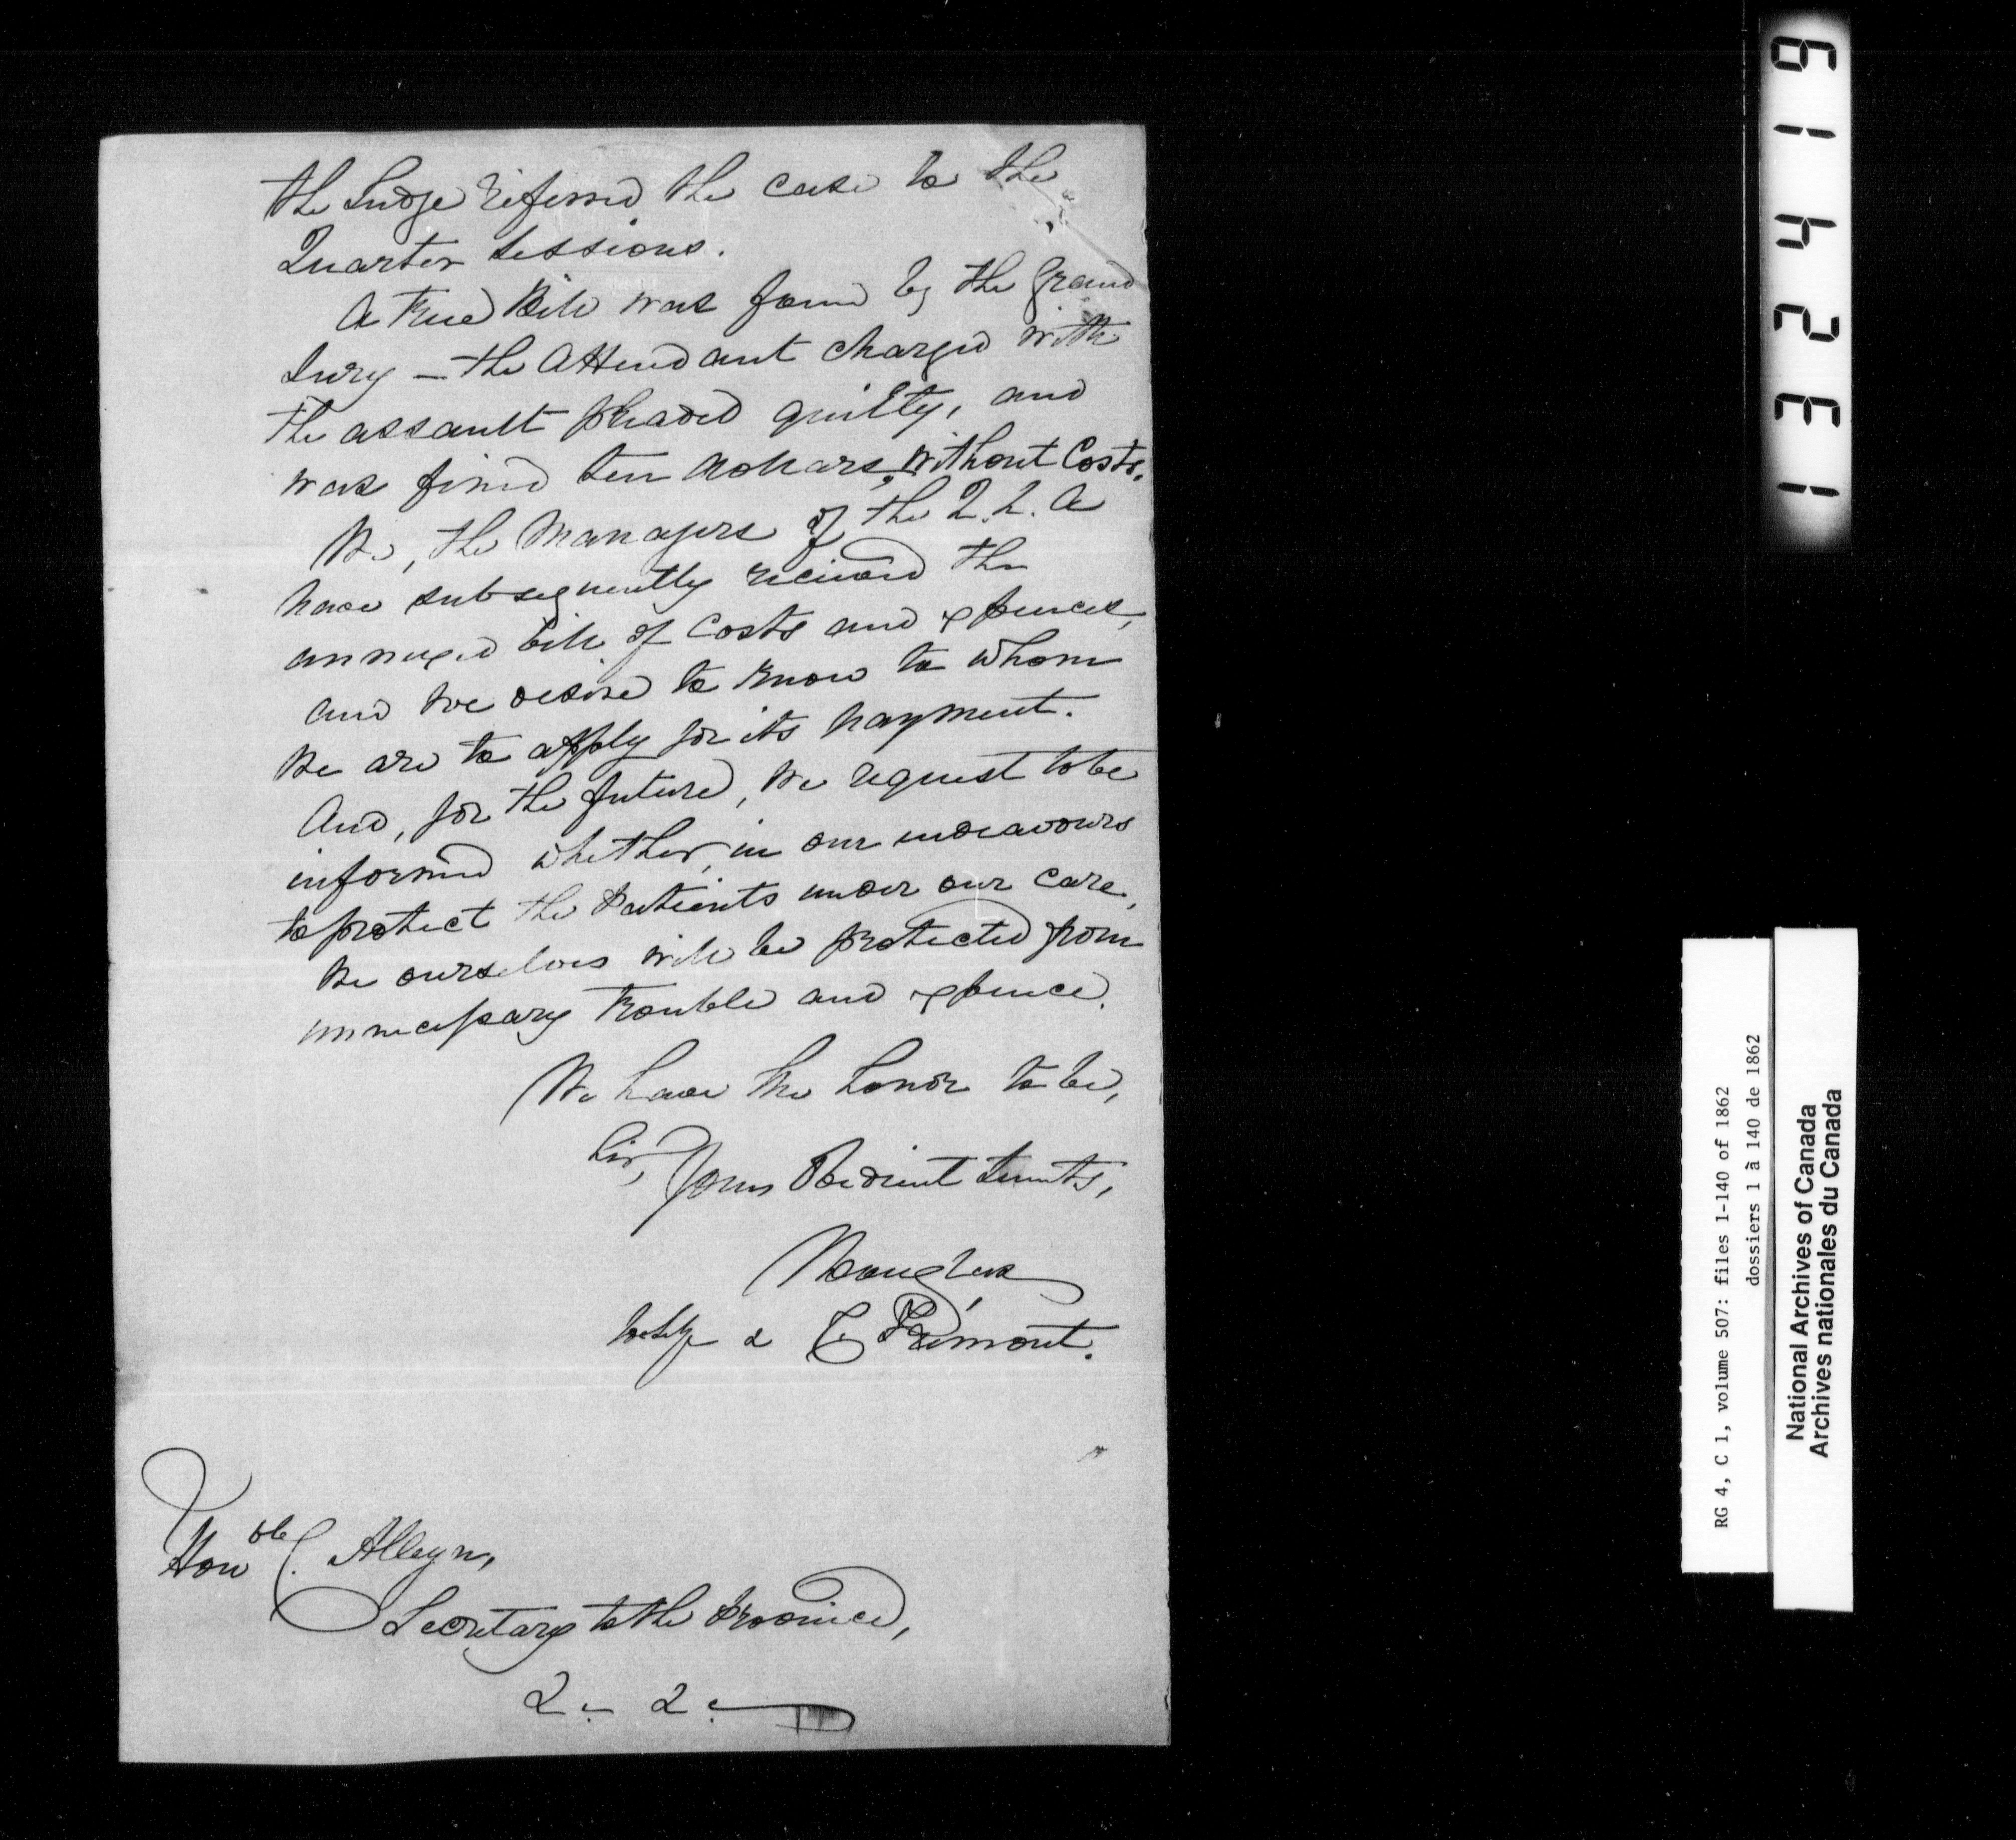 the Judge referred the case to the
Quarter Sessions.
A true Bill was found by the Grand
Jury — the Attendant charged with
the assault pleaded guilty, and
was fined ten dollars, without Costs.
We, the Managers of the Q. L. A
have subsequently received the
annexed bill of Costs and expences,
and we desire to know to whom
we are to apply for its payment.
And, for the future, we request to be
informed whether, in our endeavours
to protect the Patients under our care,
we ourselves will be protected from
unnecessary trouble and expence.
We have the honor to be,
Sir,
Your Obedient Servts,
Douglas
C Frémont.
Honble C. Alleyn,
Secretary to the Province,
&c &c
132419
RG 4, C 1, volume 507: files 1-140 of 1862
dossiers 1 à 140 de 1862
National Archives of Canada
Archives nationales du Canada